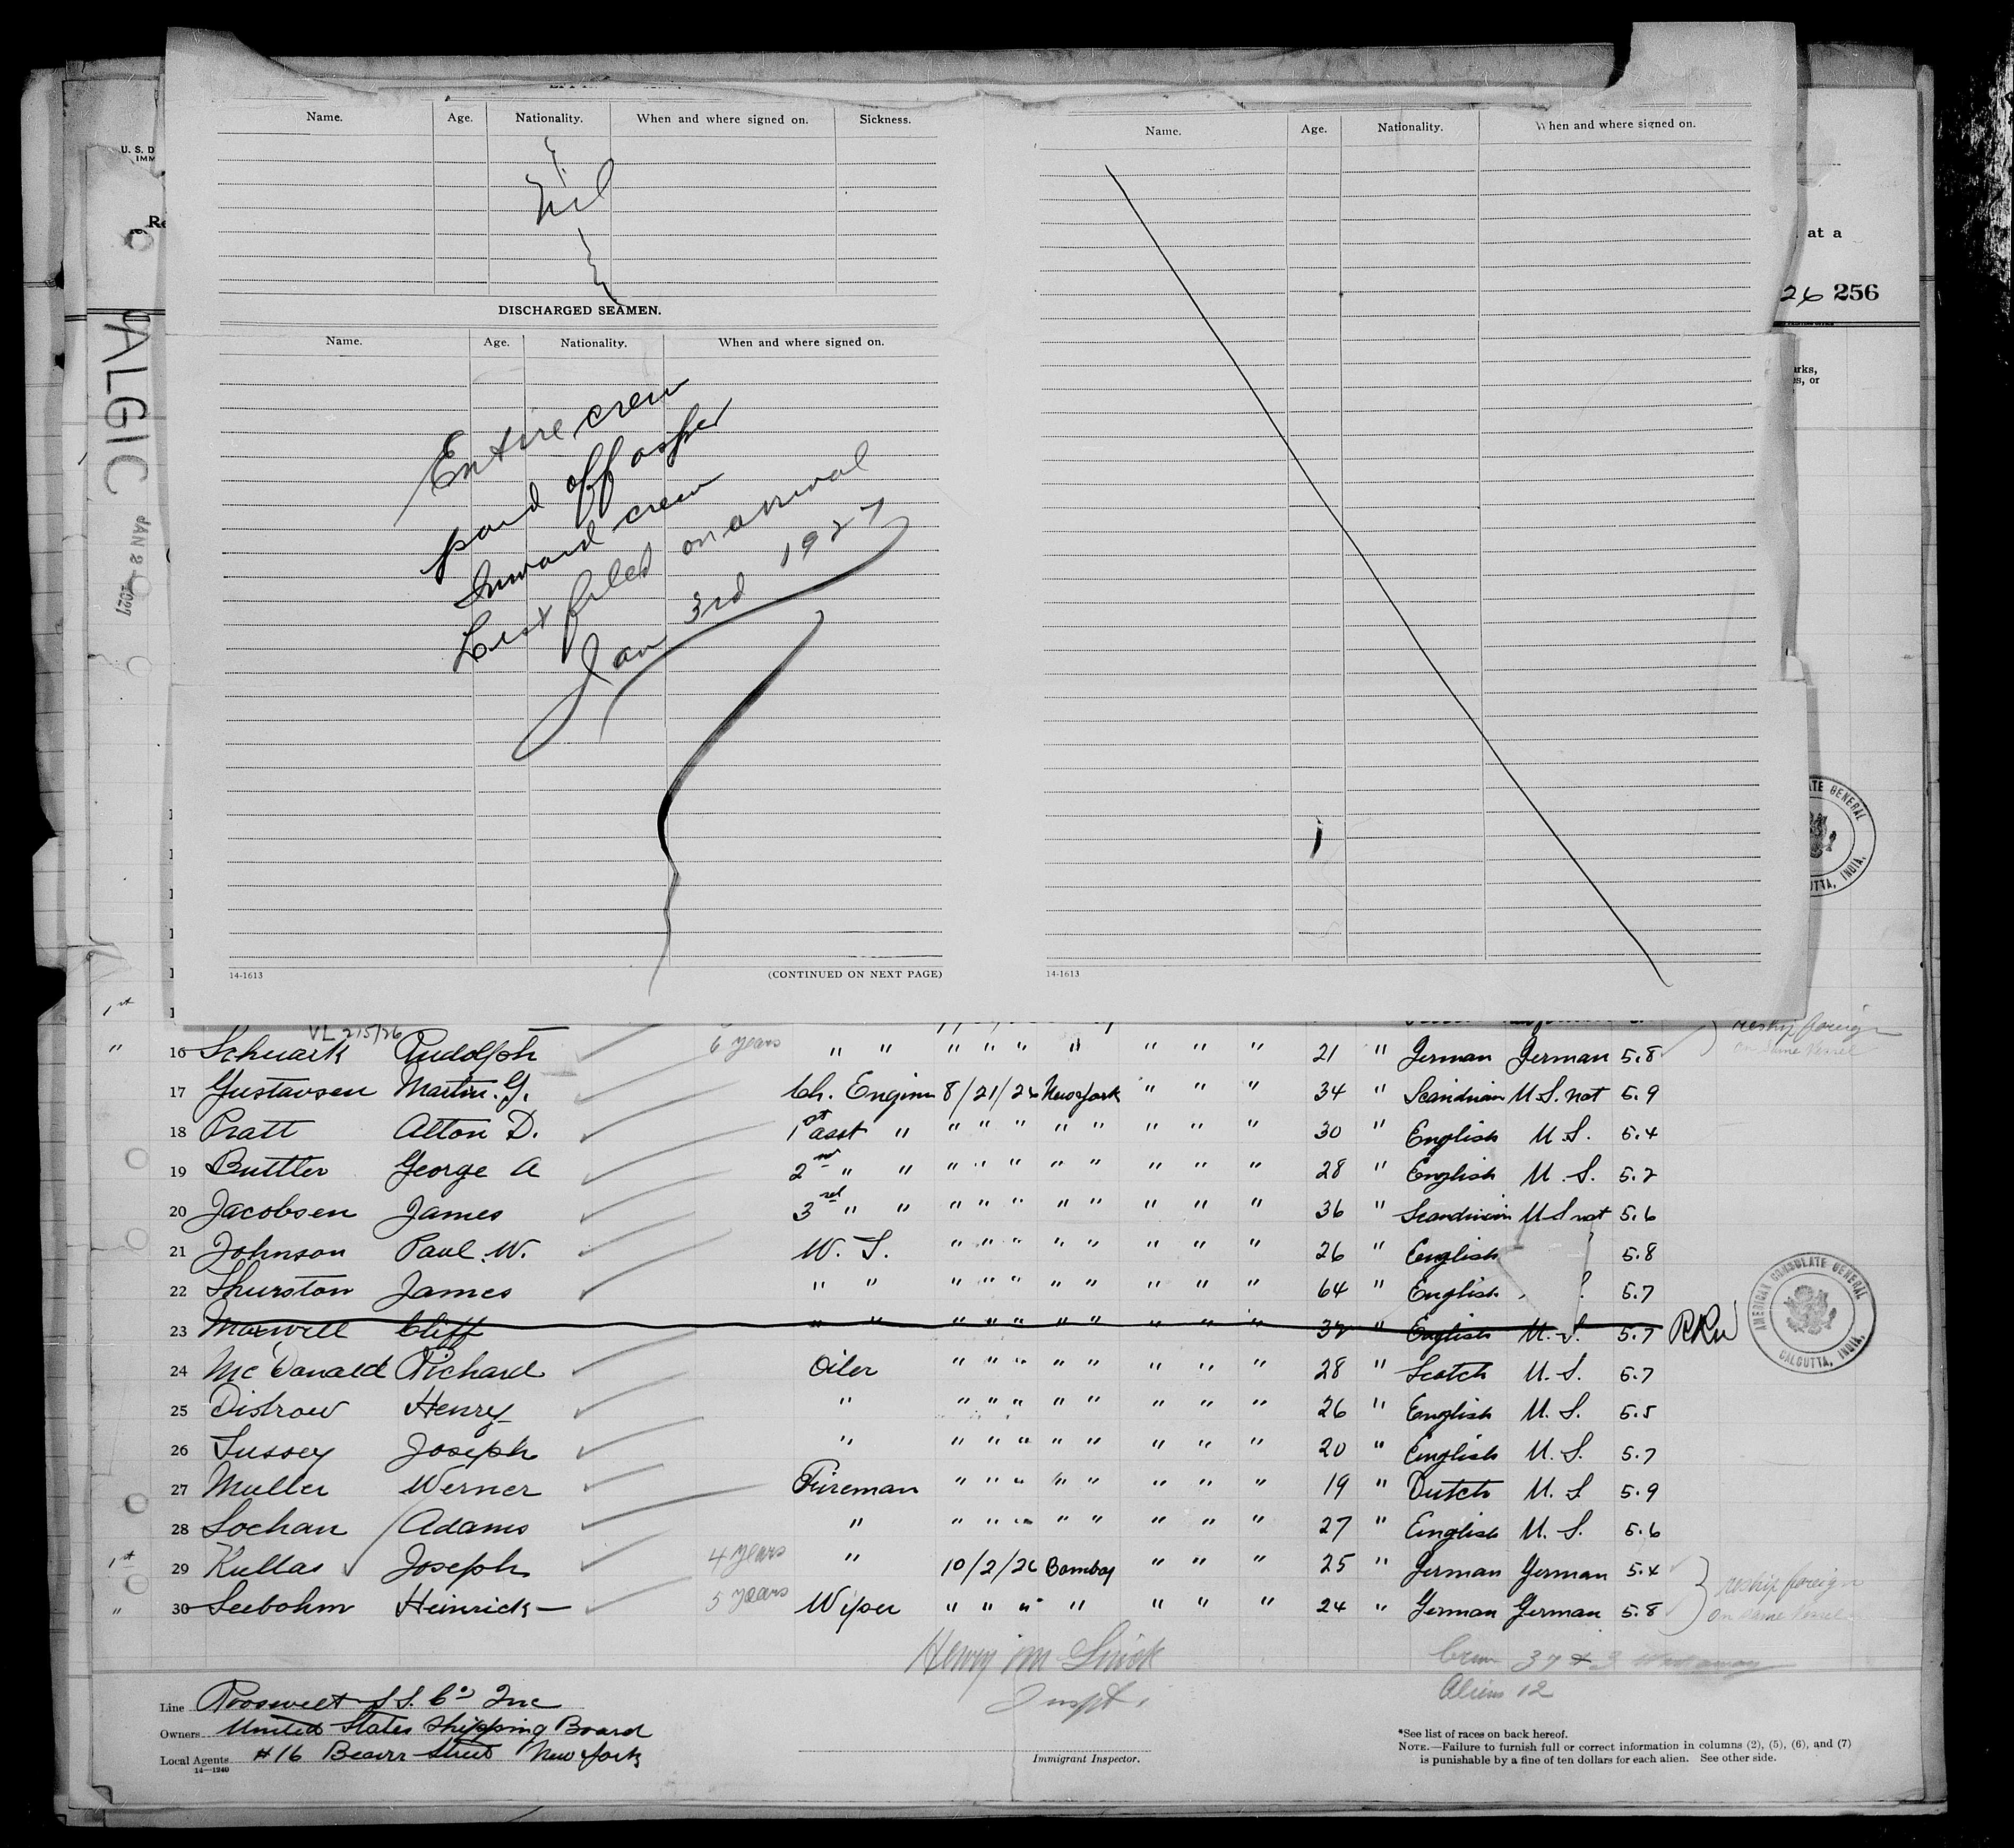 Name. Age. Nationality. When and where signed on. Sickness.
Nil
DISCHARGED SEAMEN.
Name. Age. Nationality. When and where signed on.
Entire crew
paid off as per
Inward crew
List filed on arrival
Jan 3rd 1927
14-1613 (CONTINUED ON NEXT PAGE)
Name. Age. Nationality. When and where signed on.
14-1613
U. S. D
IMM
Re
at a
26 256
arks,
es, or
ALGIC
JAN 2 - 1927
ATE GENERAL
UTTA, INDIA.
1st
VL 215/26
reship foreign
on same vessel
" 16 Schuark Rudolph 6 years " " " " " " " " " 21 " German German 5.8
17 Gustavsen Martin. G. Ch. Engineer 8/21/26 New York " " " 34 " Scandinavian U.S. nat 5.9
18 Pratt Alton D. 1st asst " " " " " " " " " 30 " English U.S. 5.4
19 Buttler George A 2nd " " " " " " " " " " 28 " English U.S. 5.2
20 Jacobsen James 3rd " " " " " " " " " " 36 " Scandinavian U S nat 5.6
21 Johnson Paul W. W. T. " " " " " " " " 26 " English 5.8
22 Thurston James " " " " " " " " " " 64 " English 5.7
23 Maxwell Cliff " " " " " " " " " " 32 " English U.S. 5.7
24 McDonald Richard Oiler " " " " " " " " 28 " Scotch U.S. 5.7
25 Distrow Henry " " " " " " " " " 26 " English U.S. 5.5
26 Tussey Joseph " " " " " " " " " 20 " English U.S. 5.7
27 Muller Werner Fireman " " " " " " " " 19 " Dutch U.S 5.9
28 Lochan Adams " " " " " " " " " 27 " English U.S. 5.6
1st 29 Kullas Joseph 4 years " 10/2/26 Bombay " " " 25 " German German 5.4
" 30 Seebohm Heinrick 5 years Wiper " " " " " " " 24 " German German 5.8
reship foreign
on same vessel
AMERICAN CONSULATE GENERAL
CALCUTTA, INDIA.
Inspt.
Aliens 12
Line Roosevelt S.S. Co. Inc
Owners United States Shipping Board
Local Agents #16 Beaver Street New York
14-1240
Immigrant Inspector.
*See list of races on back hereof.
NOTE.—Failure to furnish full or correct information in columns (2), (5), (6), and (7)
is punishable by a fine of ten dollars for each alien. See other side.